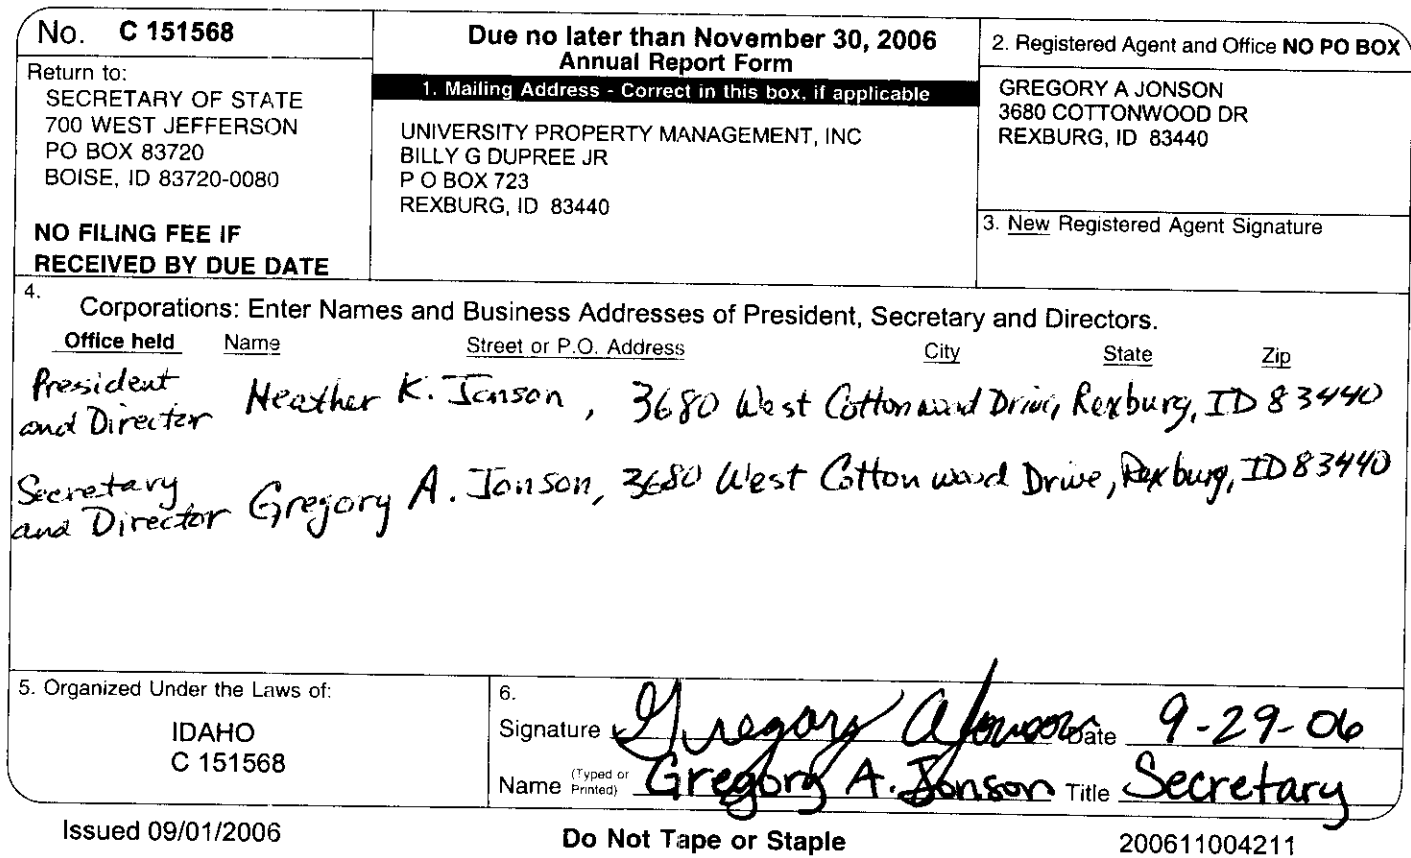 No. C 151568
Return to:
SECRETARY OF STATE
700 WEST JEFFERSON
PO BOX 83720
BOISE, ID 83720-0080
NO FILING FEE IF
RECEIVED BY DUE DATE
Due no later than November 30, 2006
Annual Report Form
1. Mailing Address - Correct in this box, if applicable
UNIVERSITY PROPERTY MANAGEMENT, INC
BILLY G DUPREE JR
P O BOX 723
REXBURG, ID 83440
2. Registered Agent and Office NO PO BOX
GREGORY A JONSON
3680 COTTONWOOD DR
REXBURG, ID 83440
3. New Registered Agent Signature
4.
Corporations: Enter Names and Business Addresses of President, Secretary and Directors.
Office held Name Street or P.O. Address City State Zip
President
and Director Heather K. Jonson, 3680 West Cottonwood Drive, Rexburg, ID 83440
Secretary
and Director Gregory A. Jonson, 3680 West Cottonwood Drive, Rexburg, ID 83440
5. Organized Under the Laws of:
IDAHO
C 151568
6.
Signature Gregory A Jonson Date 9-29-06
Name (Typed or Printed) Gregory A. Jonson Title Secretary
Issued 09/01/2006
Do Not Tape or Staple
200611004211